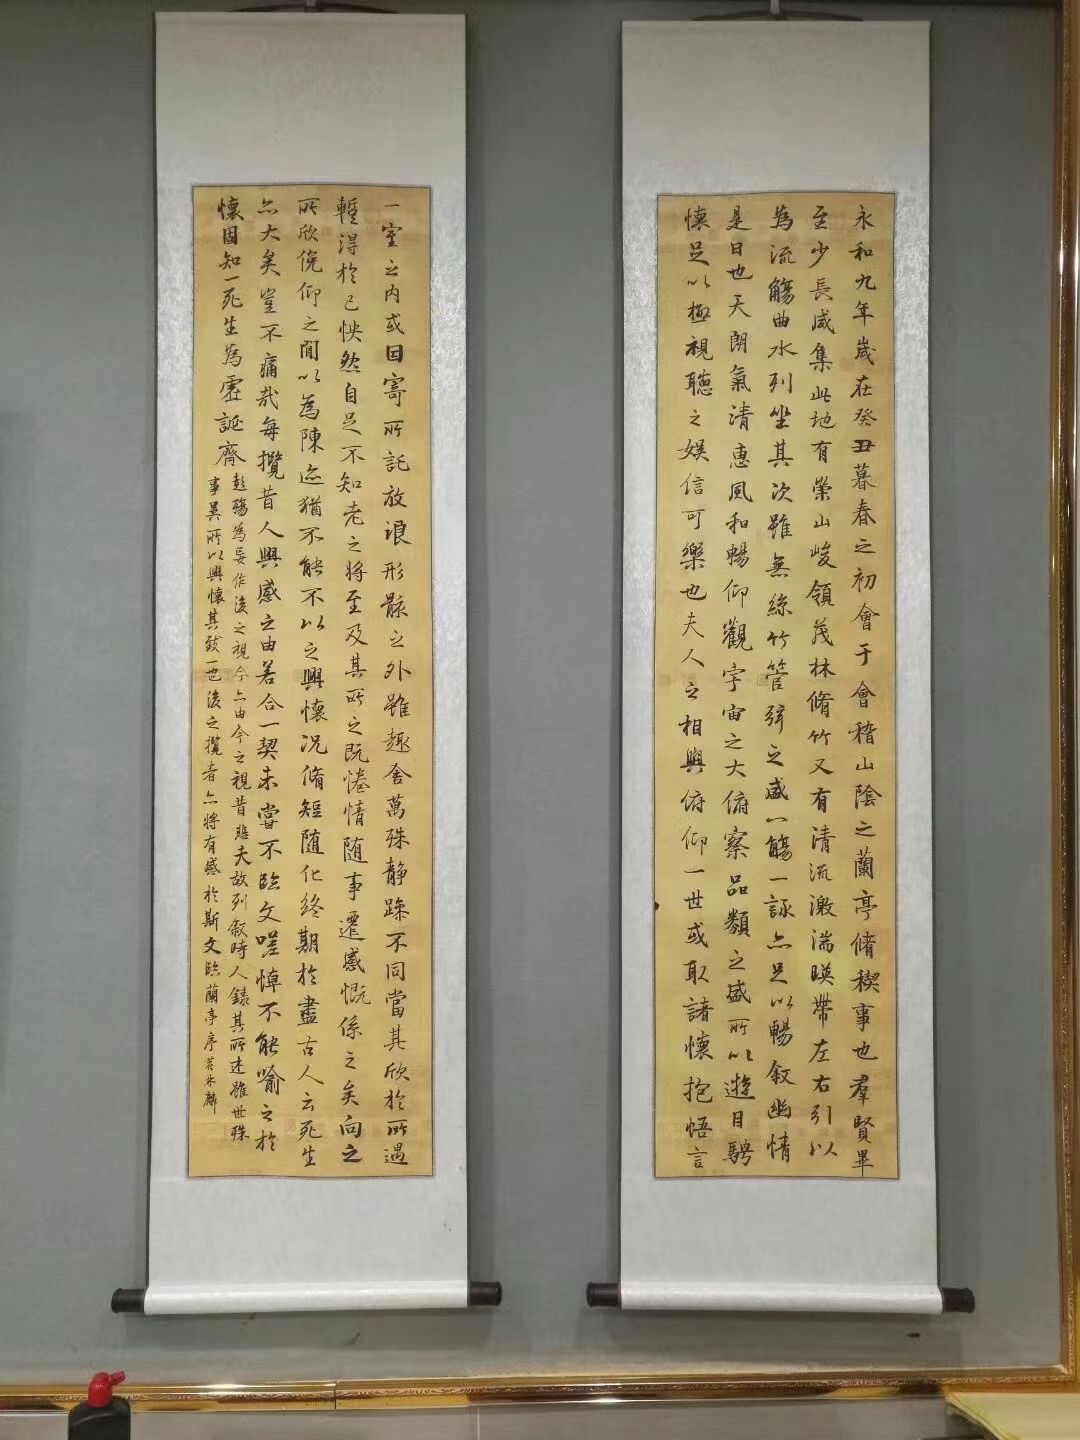 永和九年歲在癸丑暮春之初會于會稽山陰之蘭亭脩稧事也羣賢畢
至少長咸集此地有崇山峻領茂林脩竹又有清流激湍暎帶左右引以
為流觴曲水列坐其次雖無絲竹管弦之盛一觴一詠亦足以暢叙幽情
是日也天朗氣清惠風和暢仰觀宇宙之大俯察品類之盛所以遊目騁
懷足以極視聽之娛信可樂也夫人之相與俯仰一世或取諸懷抱悟言
一室之內或因寄所託放浪形骸之外雖趣舍萬殊静躁不同當其欣於所遇
暫得於己怏然自足不知老之將至及其所之既惓情随事遷感慨係之矣向之
所欣俛仰之閒以為陳迹猶不能不以之興懷況脩短随化終期於盡古人云死生
亦大矣豈不痛哉每攬昔人興感之由若合一契未嘗不臨文嗟悼不能喻之於
懷固知一死生為虛誕齊
彭殤為妄作後之視今亦由今之視昔悲夫故列叙時人錄其所述雖世殊
事異所以興懷其致一也後之攬者亦將有感於斯文臨蘭亭序